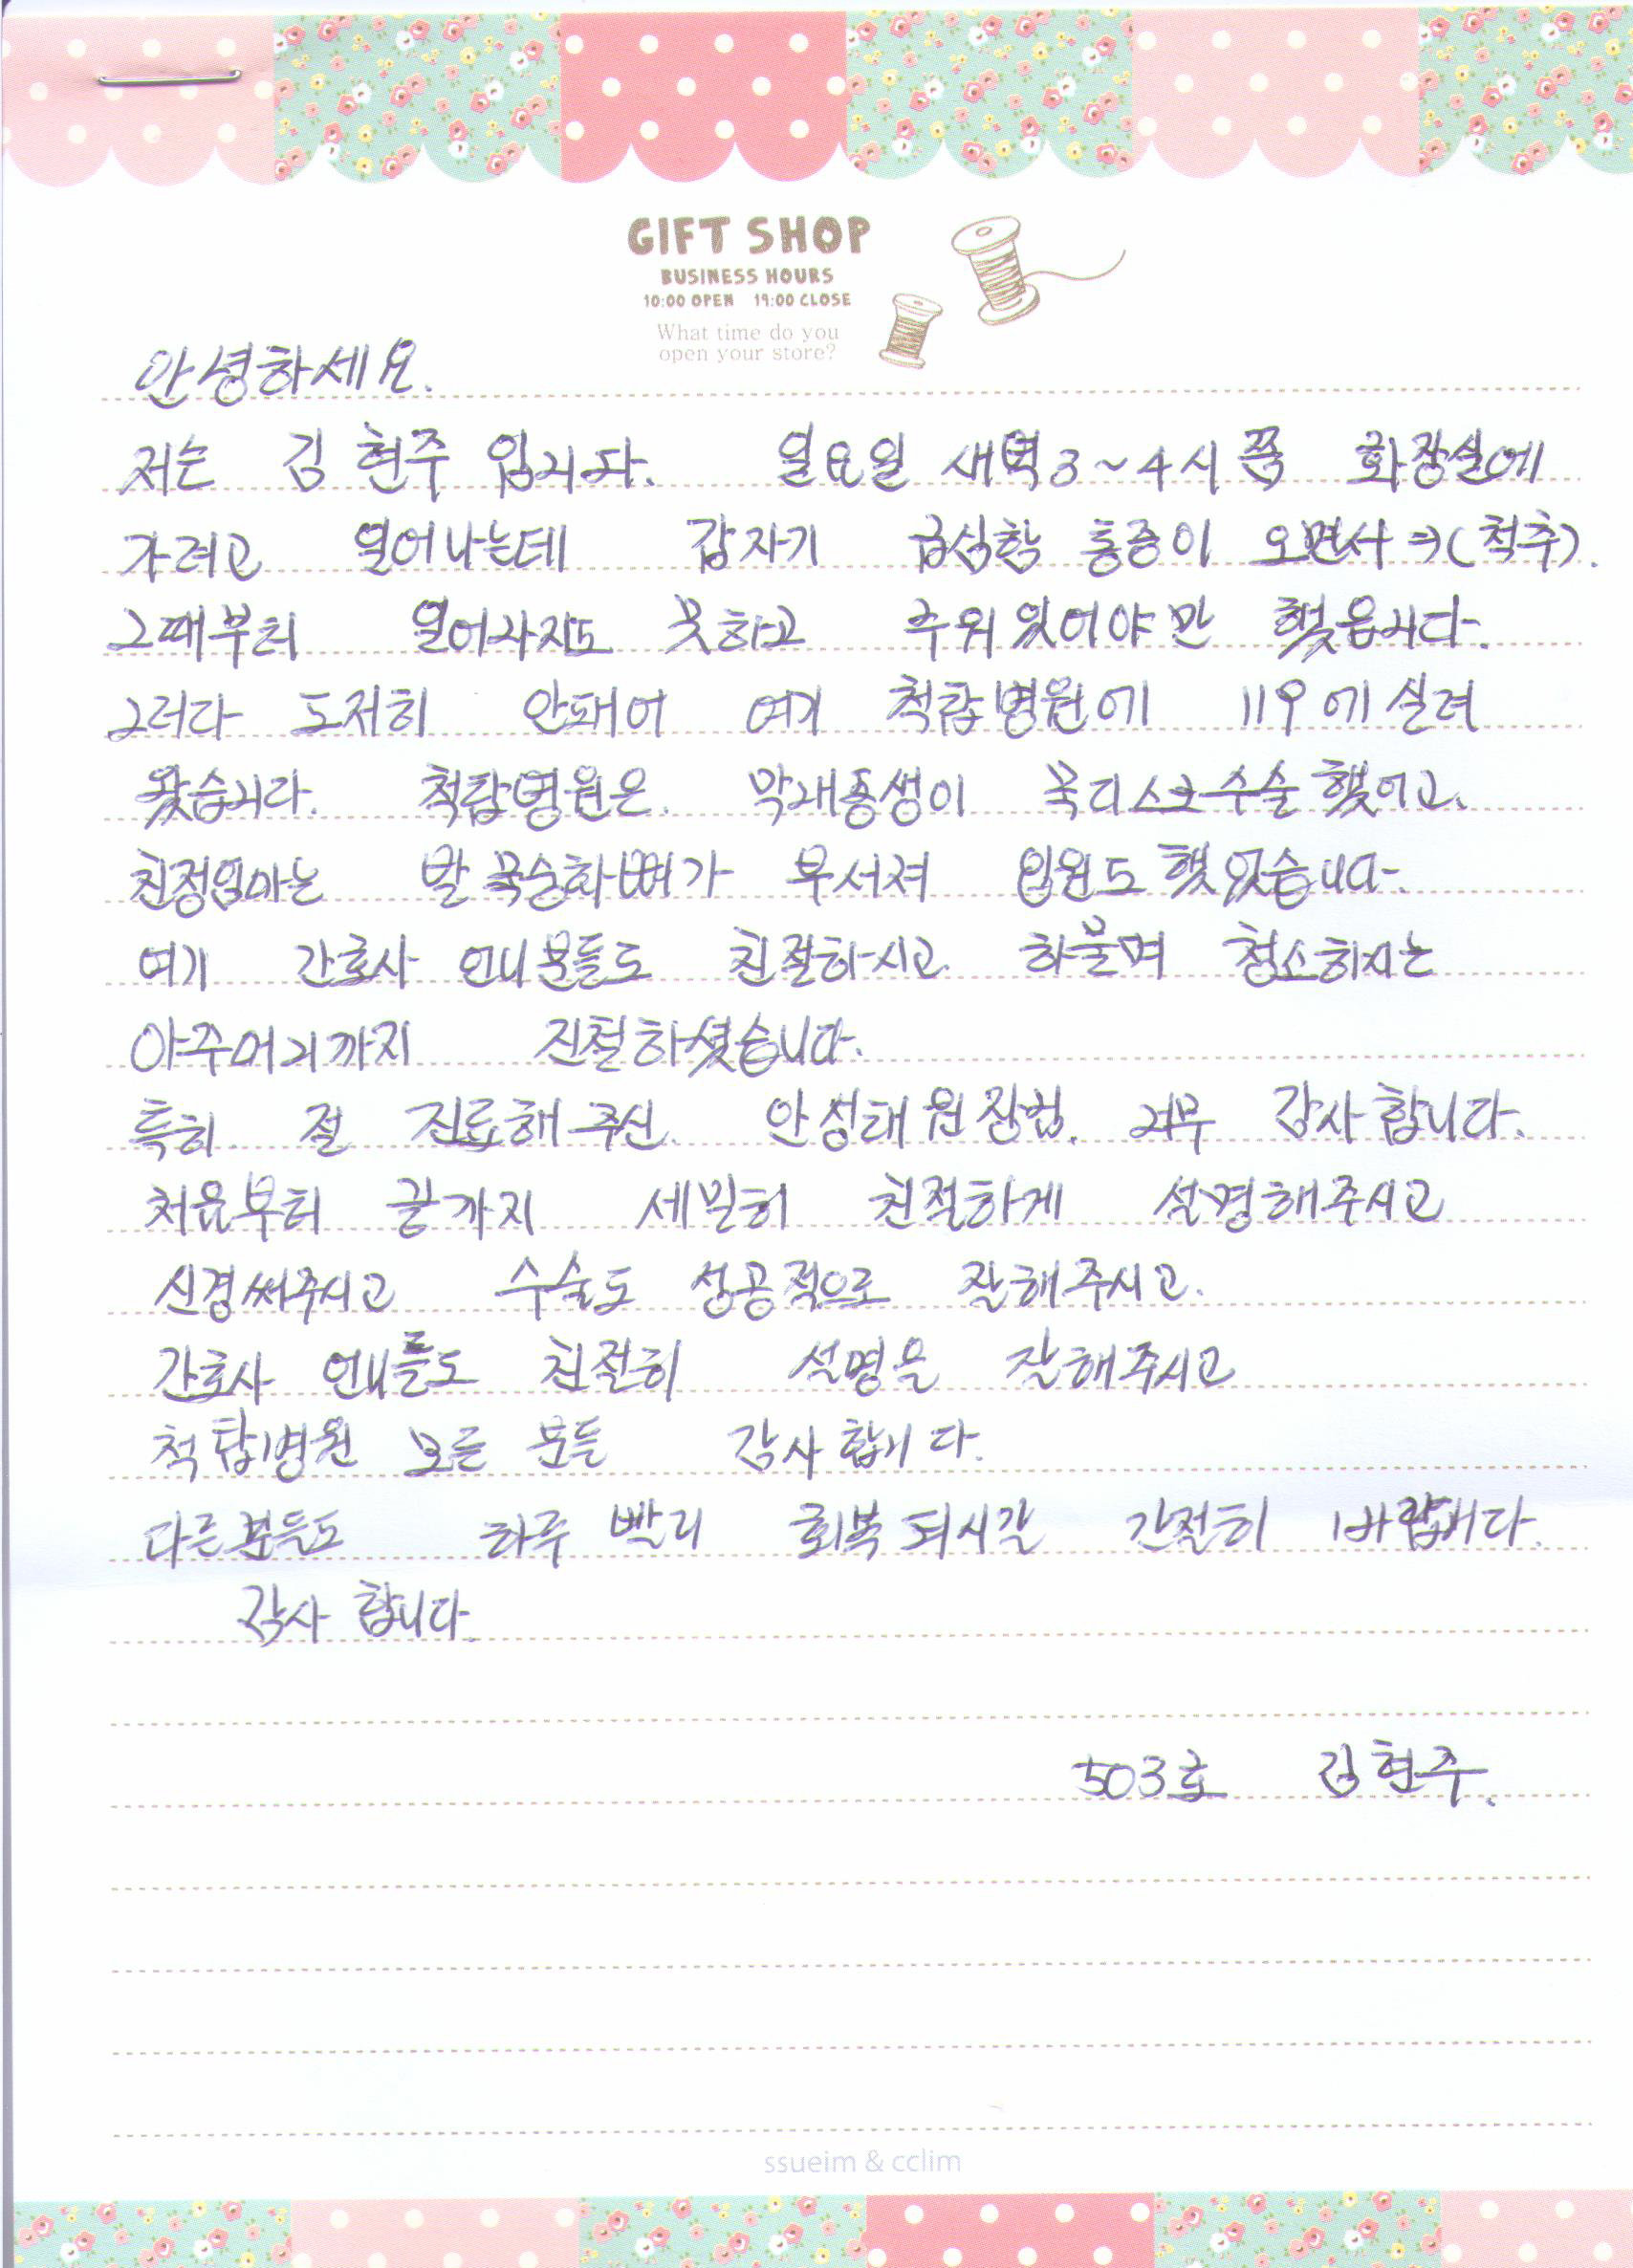 GIFT SHOP
BUSINESS HOURS
10:00 OPEN 19:00 CLOSE
What time do you
open your store?
안녕하세요.
저는 김현주 입니다. 일요일 새벽 3~4시 쯤 화장실에
가려고 일어나는데 갑자기 급심함 통증이 오면서 ⇒(척추).
그때부터 일어나지도 못하고 누워 있어야만 했읍니다.
그러다 도저히 안돼어 여기 척탑병원에 119에 실려
왔습니다. 척탑병원은. 막내동생이 목디스크수술 했이고.
친정엄마는 발 꿈순화뼈가 부서져 입원도 했었습니다.
여기 간호사 언니분들도 친절하시고. 하물며 청소하시는
아주머니까지 친절하셨습니다.
특히 절 진료해 주신. 안성태 원장님. 너무 감사합니다.
처음부터 끝까지 세밀히 친절하게 설명해주시고
신경써주시고 수술도 성공적으로 잘해주시고.
간호사 언니들도 친절히 설명을 잘해주시고
척탑병원 모든 분들 감사합니다.
다른분들도 하루 빨리 회복 되시길 간절히 바랍니다.
감사 합니다.
503호 김현주.
ssueim & cclim